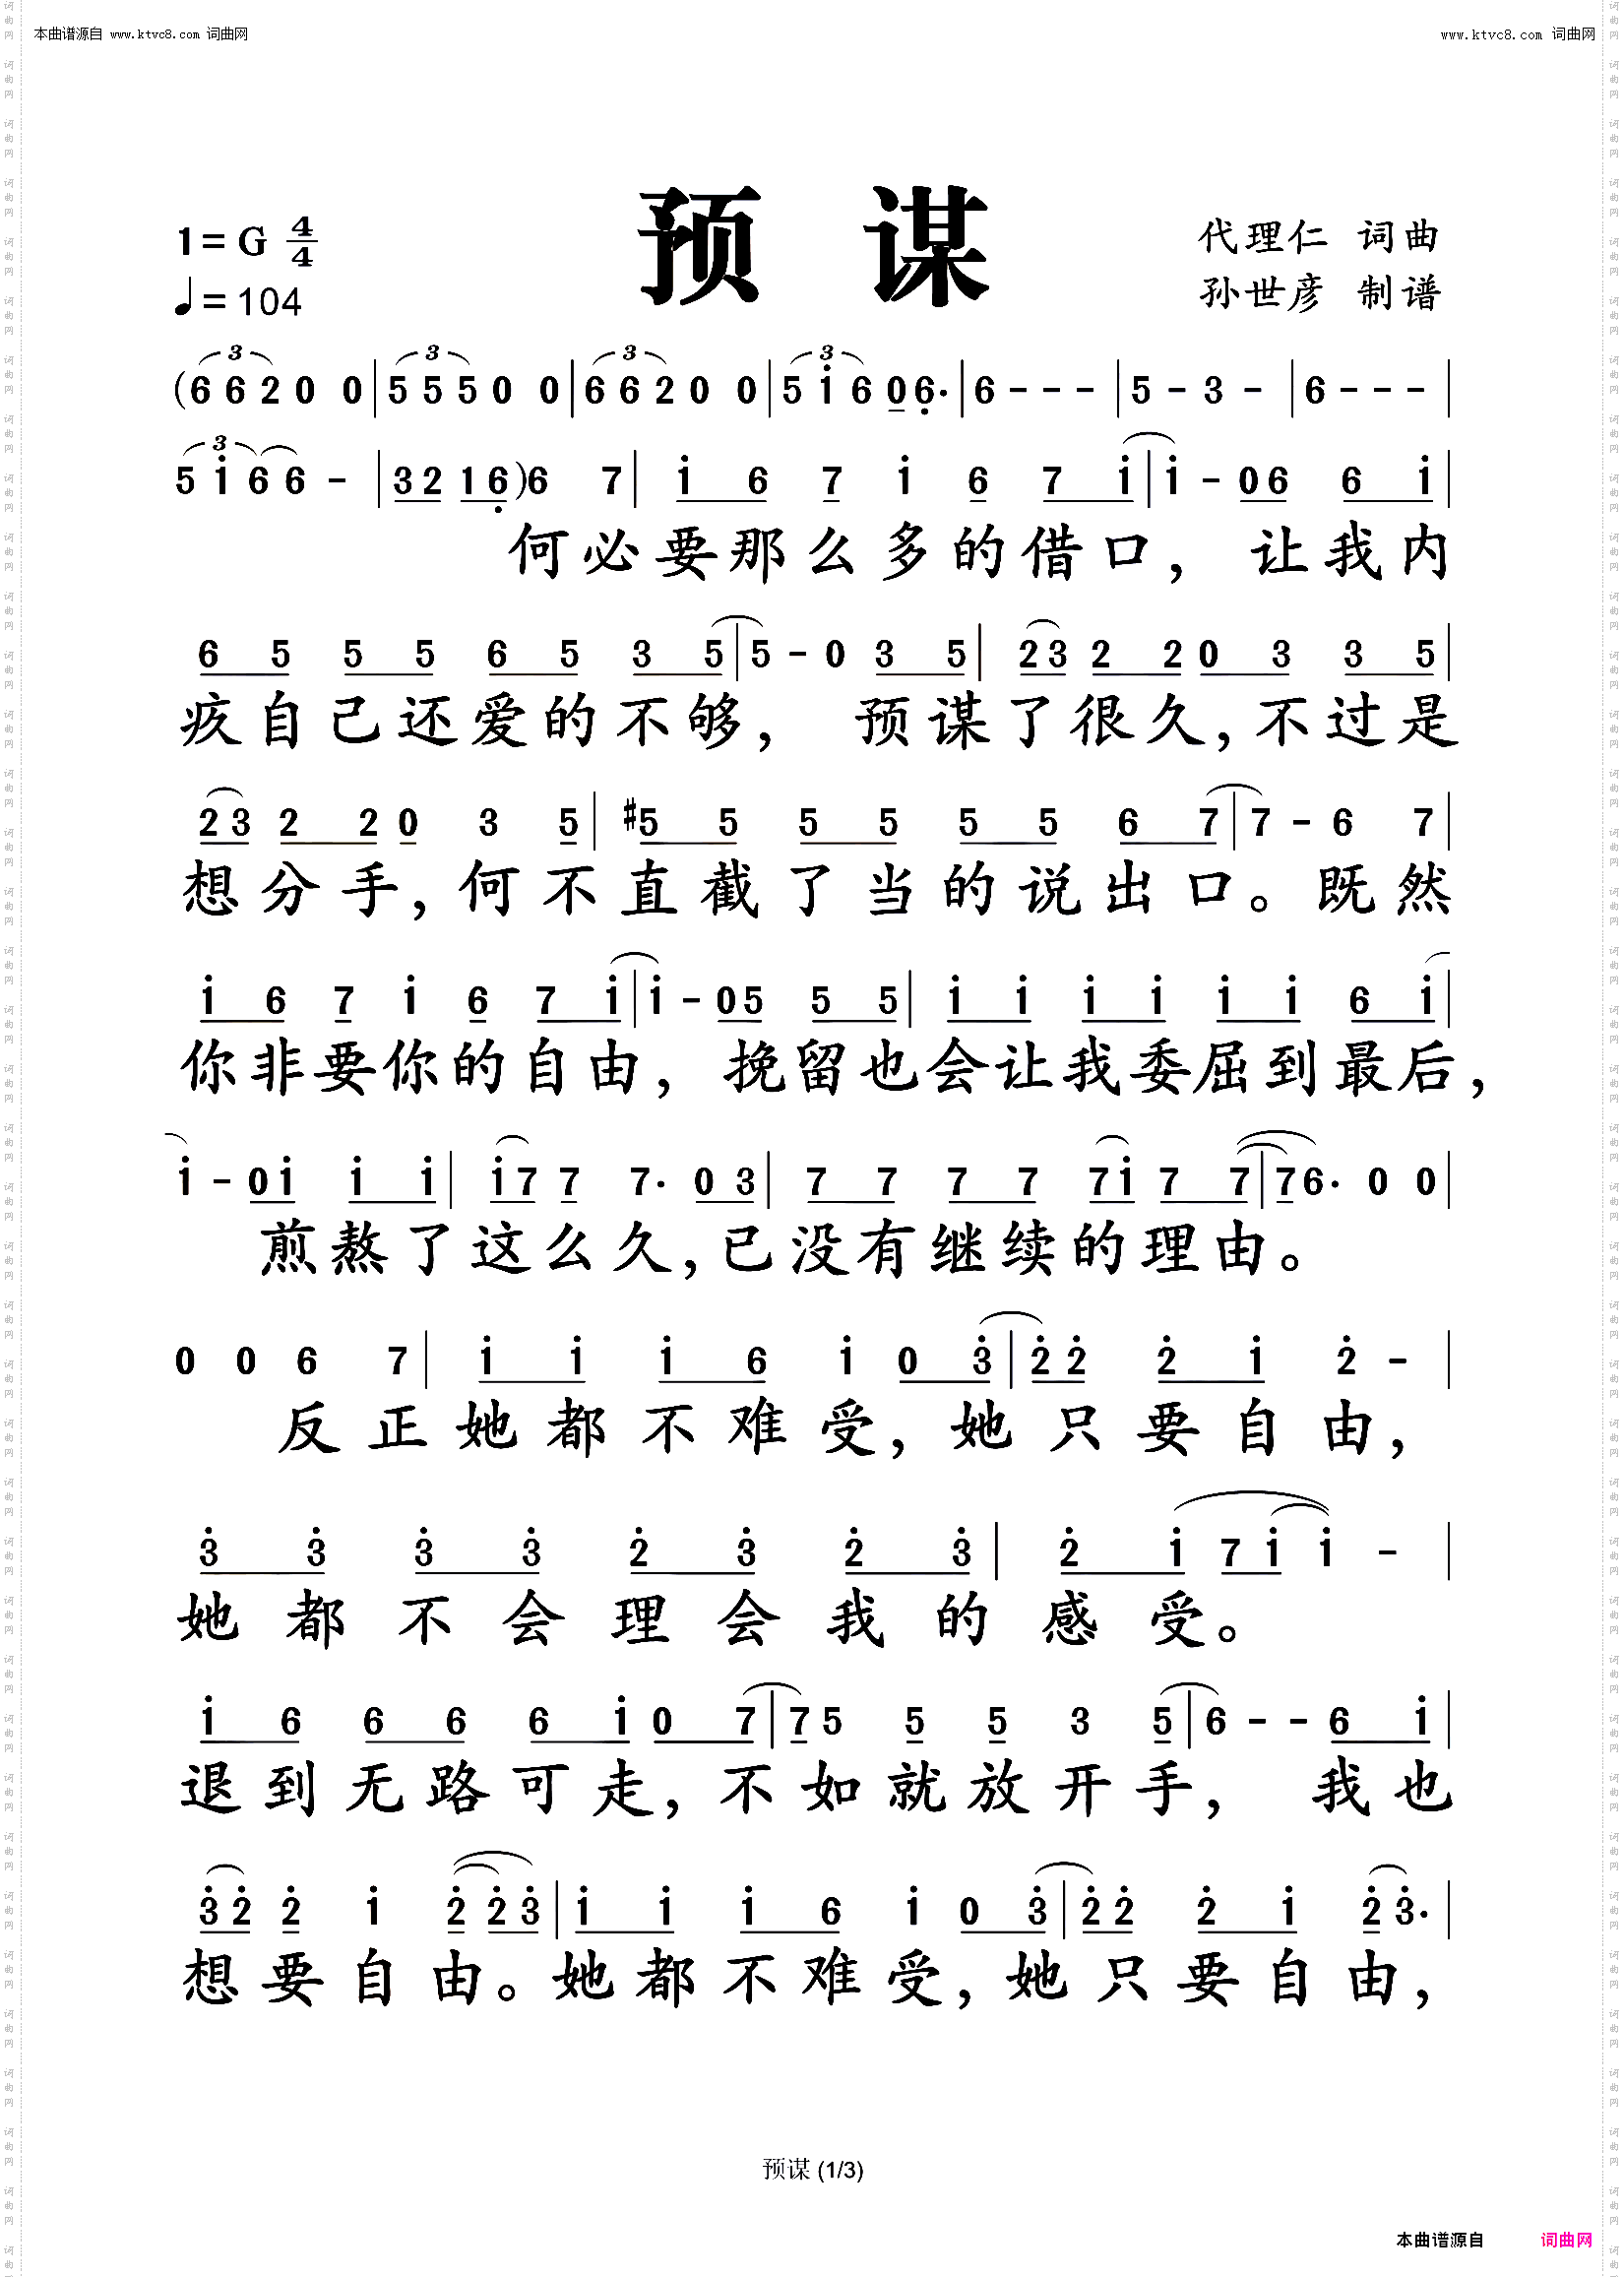 本曲谱源自 www.ktvc8.com 词曲网
www.ktvc8.com 词曲网
预 谋
1=G 4/4
♩=104
代理仁 词曲
孙世彦 制谱
(6 6 2 0 0 | 5 5 5 0 0 | 6 6 2 0 0 | 5 i 6 0 6. | 6 - - - | 5 - 3 - | 6 - - - |
5 i 6 6 - | 3 2 1 6 ) 6 7 | i 6 7 i 6 7 i | i - 0 6 6 i |
何必要那么多的借口, 让我内
6 5 5 5 6 5 3 5 | 5 - 0 3 5 | 2 3 2 2 0 3 3 5 |
疚自己还爱的不够, 预谋了很久, 不过是
2 3 2 2 0 3 5 | #5 5 5 5 5 5 6 7 | 7 - 6 7 |
想分手, 何不直截了当的说出口。既然
i 6 7 i 6 7 i | i - 0 5 5 5 | i i i i i i 6 i |
你非要你的自由, 挽留也会让我委屈到最后,
i - 0 i i i | i 7 7 7. 0 3 | 7 7 7 7 7 i 7 7 | 7 6. 0 0 |
煎熬了这么久, 已没有继续的理由。
0 0 6 7 | i i i 6 i 0 3 | 2 2 2 i 2 - |
反正她都不难受, 她只要自由,
3 3 3 3 2 3 2 3 | 2 i 7 i i - |
她都不会理会我的感受。
i 6 6 6 6 i 0 7 | 7 5 5 5 3 5 | 6 - - 6 i |
退到无路可走, 不如就放开手, 我也
3 2 2 i 2 2 3 | i i i 6 i 0 3 | 2 2 2 i 2 3. |
想要自由。她都不难受, 她只要自由,
预谋 (1/3)
本曲谱源自 词曲网